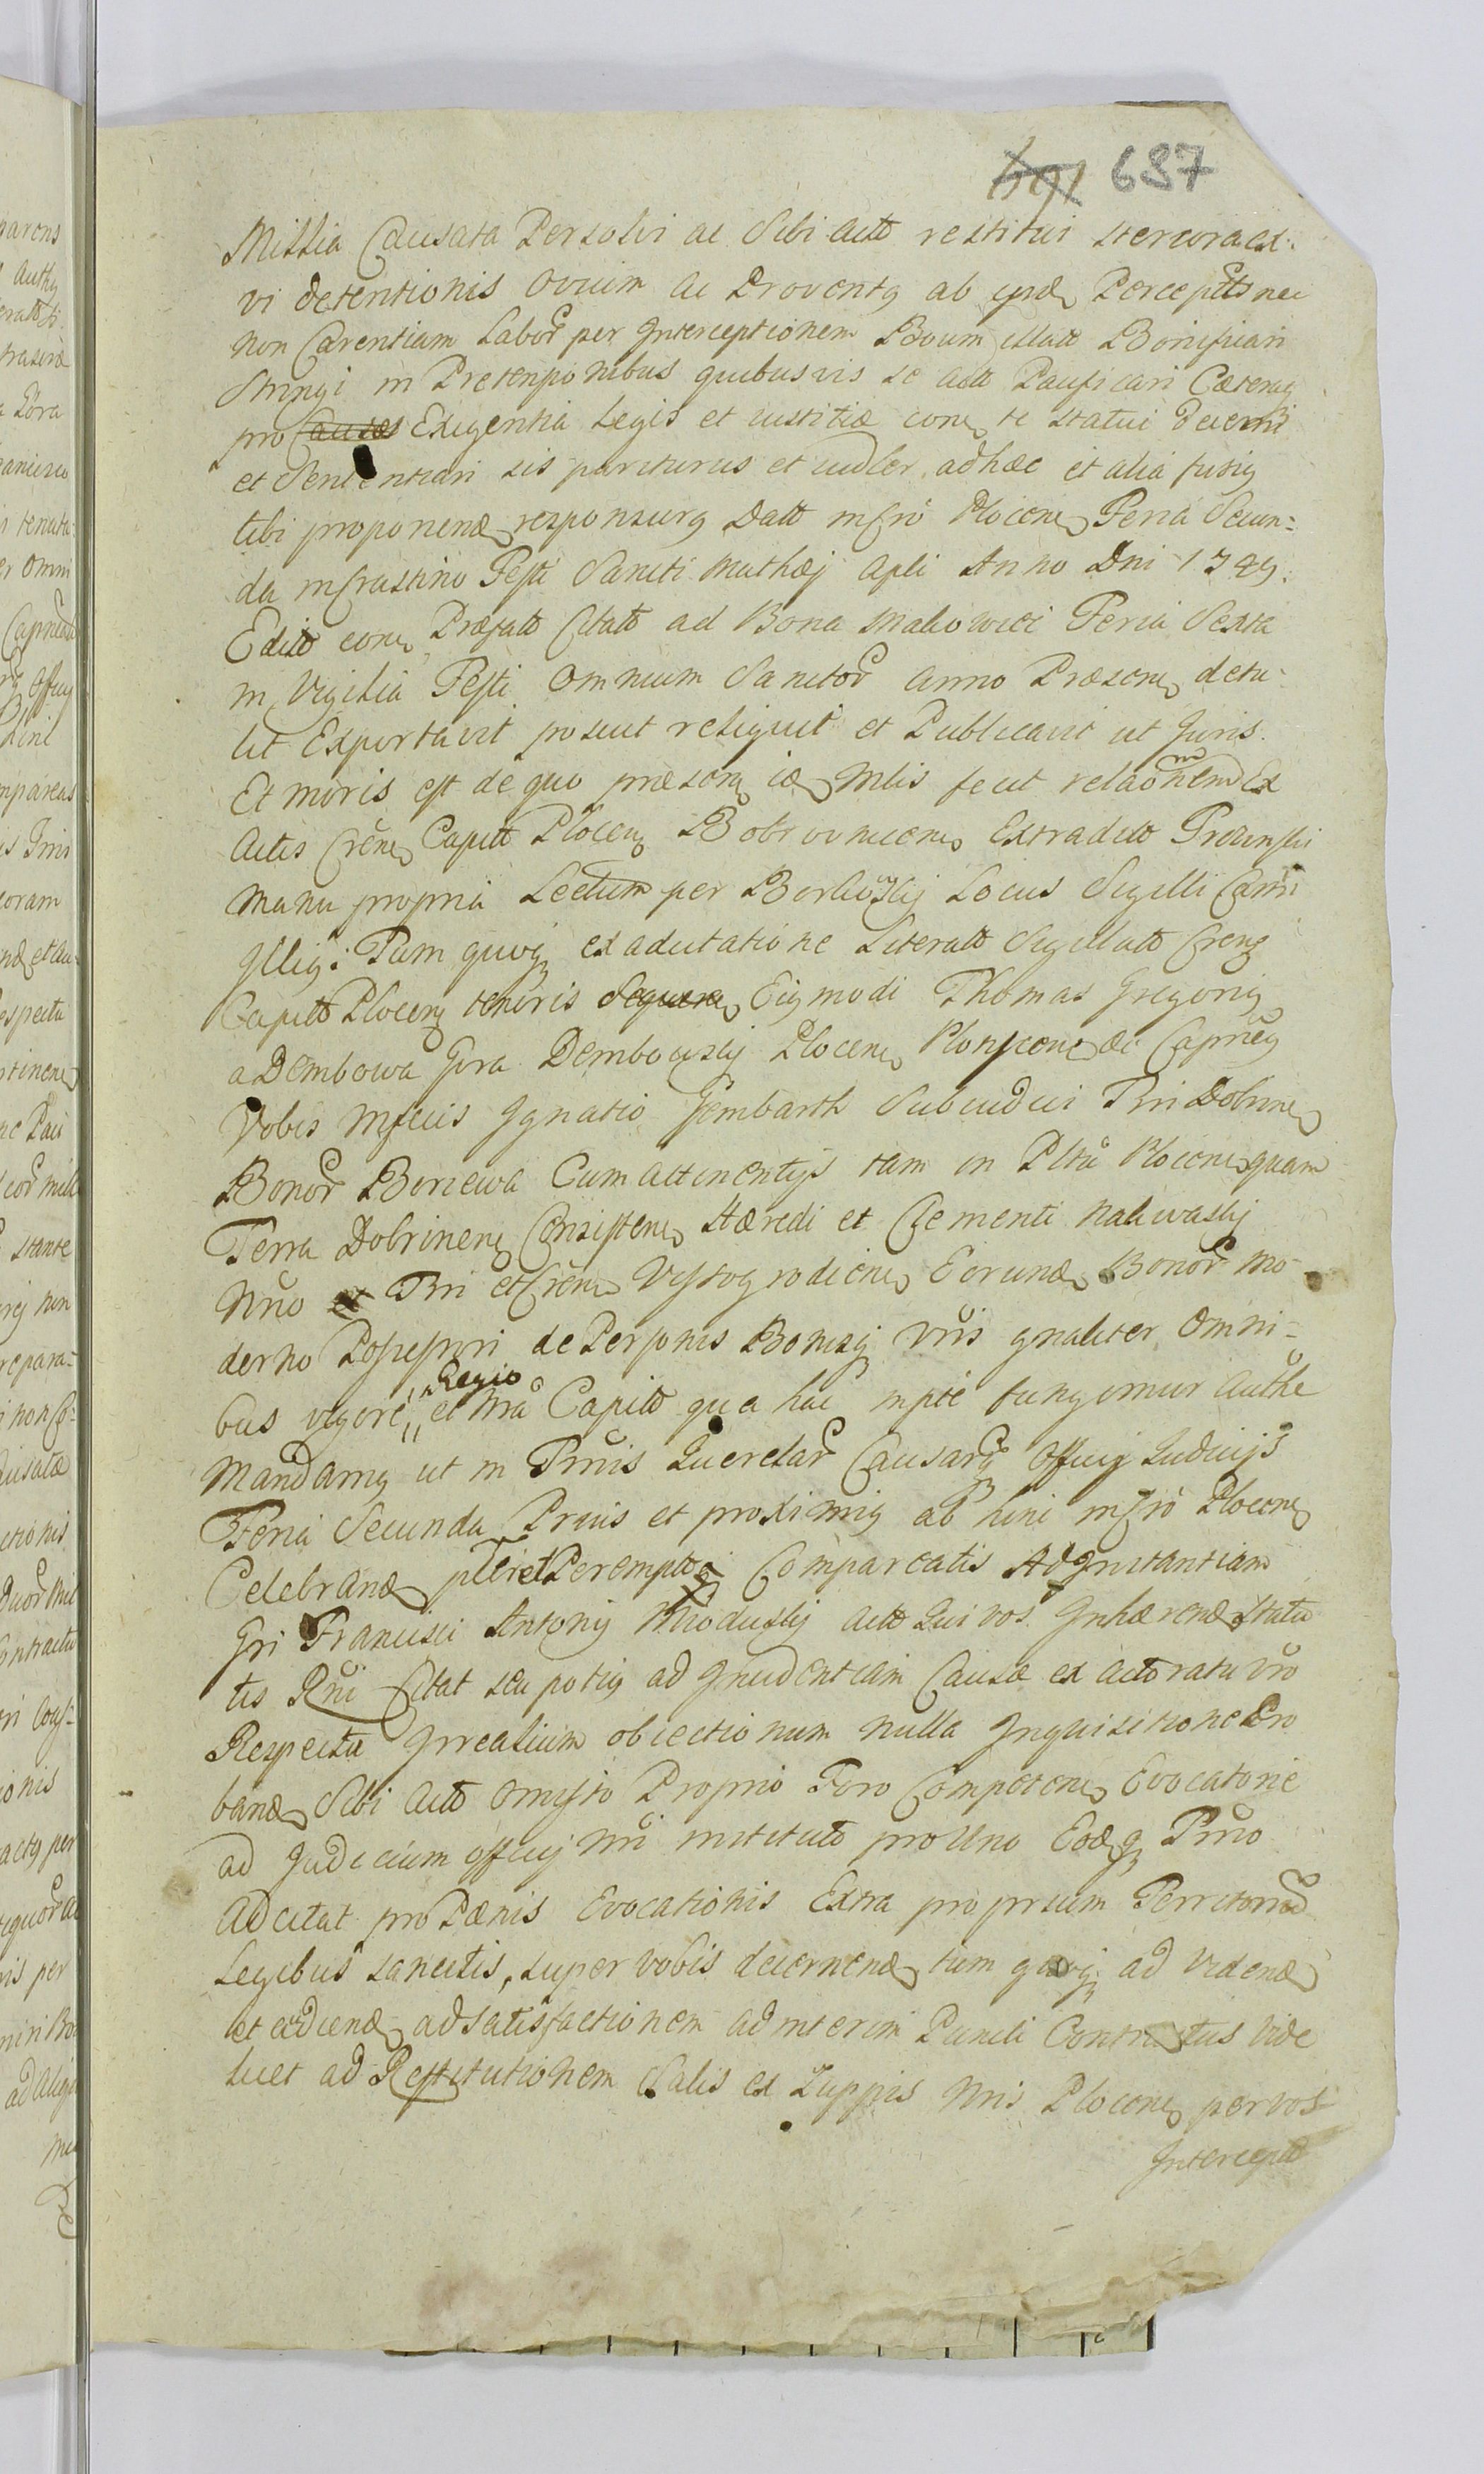 691 687
Millia Causata Persolvi ac Sibi Actt restitui stercora ex
vi detentionis Ovium ac Proventg ab ijsd Perceptt nec
non Carentiam Labor per Interceptionem Boum illatt Bonificari
Stringi in Pretensionibus quibusvis se Actt Pacificari Cæteraq
pro Causæ Exigentia Legis et iustitiæ con te statui decerni
et Sententiari sis pariturus et iudlr adhæc et alia fusig
tibi proponend responsurg Datt in Crō Plocen Feria Secun=
da in Crastino Festi Sancti Mathæj Apli Anno Dni 1749.
Editt con Præfatt Citatt ad Bona Makowiec Feria Sexta
in Vigilia Festi Omnium Sanctor Anno Præsen detu-
lit Exportavit posuit reliquit et Publicavit ut Juris
Et moris est de quo præsen id Mlis fecit relaōnem Ex
Actis Cren Capitt Plocen Bobrovnicen Extraditt Trcinski
manu propria Lectum per Borkowskij Locus Sigilli Cami
Illig: Tum quoq ex adcitatione Literatt Sigillatt Cren
Capitt Plocen tenoris Sequen Eigmodi Thomas Gregorig
a Dembowa Gora Dembowskij Plocen Plonscen &c Capneg
Vobis Mfcis Ignatio Gembarth Subiudici Tri Dobrinen
Bonor Boriewa Cum attinentijs tam in Pltu Plocen quam
Terra Dobrinen Consisten Hæredi et Clementi Nakwaskij
Nrio et Tri et Cren Vyszogrodien Eorund Bonor Mo-
derno Possessori de Personis Bonisq vris gnaliter Omni=
bus vigore Regio et Nra Capitt qua hac in pte fungimur Authe
Mandamg ut in Trnis Querelar Causarq Officij Judicijs
Feria Secunda Prius et proximig ab hinc in Crō Plocen
Celebrand pltr et Peremptt Comparcatis Ad Instantiam
Gri Francisci Antonij Mioduskij Actt Qui vos Inhærend Statu
tis Rni Citat seu potig ad Incidentiam Causæ ex actoratu vro
Respectu Irrealium obiectionum nulla Inquisitione Pro
band Sibi Actt Omisso Proprio Foro Competen Evocatorie
ad Judicium Officij Nri institutt pro Uno Eodq Trnio
Adcitat pro Pænis Evocationis Extra proprium Territoriu
Legibus sancitis, super vobis decernend tum quoq ad Vidend
et audiend ad Satisfactionem ad interim Puncti Contractus Vide
licet ad Restitutionem Salis ex Zuppis Nris Plocen per vos
Interceptt